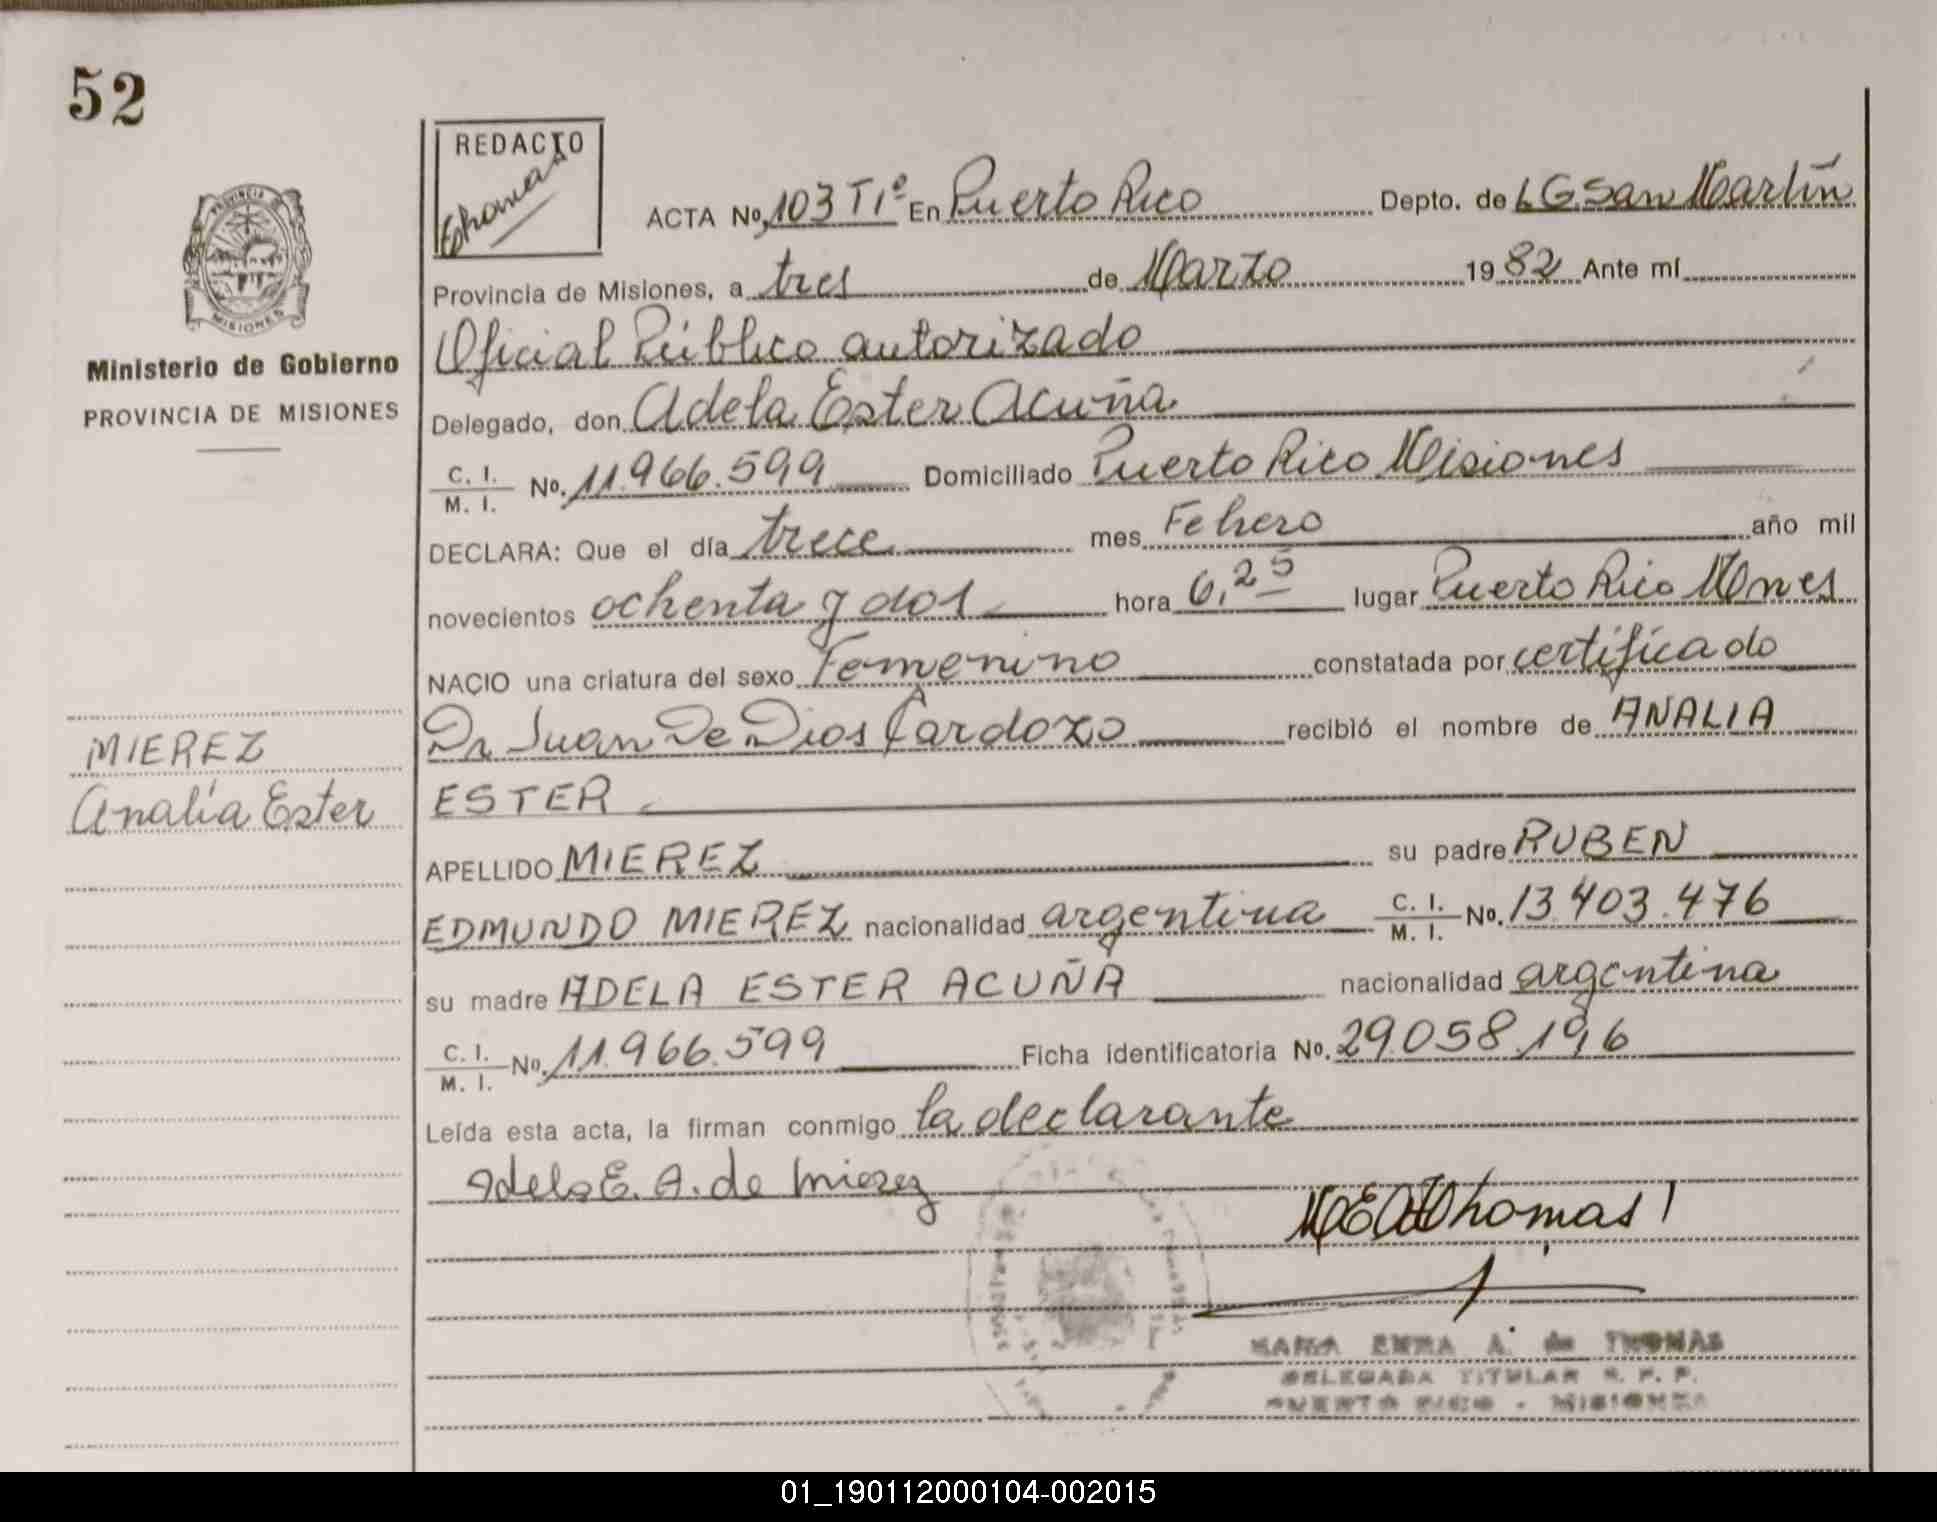 52
REDACTO
Ethomas
ACTA No. 103 TIº En Puerto Rico Depto. de L G. San Martín
Provincia de Misiones, a tres de Marzo 1982 Ante mí
Oficial Público autorizado
Delegado, don Adela Ester Acuña
C. I. M. I. No. 11.966.599 Domiciliado Puerto Rico Misiones
DECLARA: Que el día trece mes Febrero año mil
novecientos ochenta y dos hora 6,25 lugar Puerto Rico Mnes
NACIO una criatura del sexo Femenino constatada por certificado
Dr Juan De Dios Cardozo recibió el nombre de ANALIA
ESTER
APELLIDO MIEREZ su padre RUBEN
EDMUNDO MIEREZ nacionalidad argentina C. I. M. I. No. 13.403.476
su madre ADELA ESTER ACUÑA nacionalidad argentina
C. I. M. I. No. 11.966.599 Ficha identificatoria No. 29.058.196
Leída esta acta, la firman conmigo la declarante
Adela E. A. de Mierez
MEAdThomas
MARIA EMMA A. de THOMAS
DELEGADA TITULAR R. P. P.
PUERTO RICO - MISIONES
PROVINCIA DE
MISIONES
Ministerio de Gobierno
PROVINCIA DE MISIONES
MIEREZ
Analía Ester
01_190112000104-002015